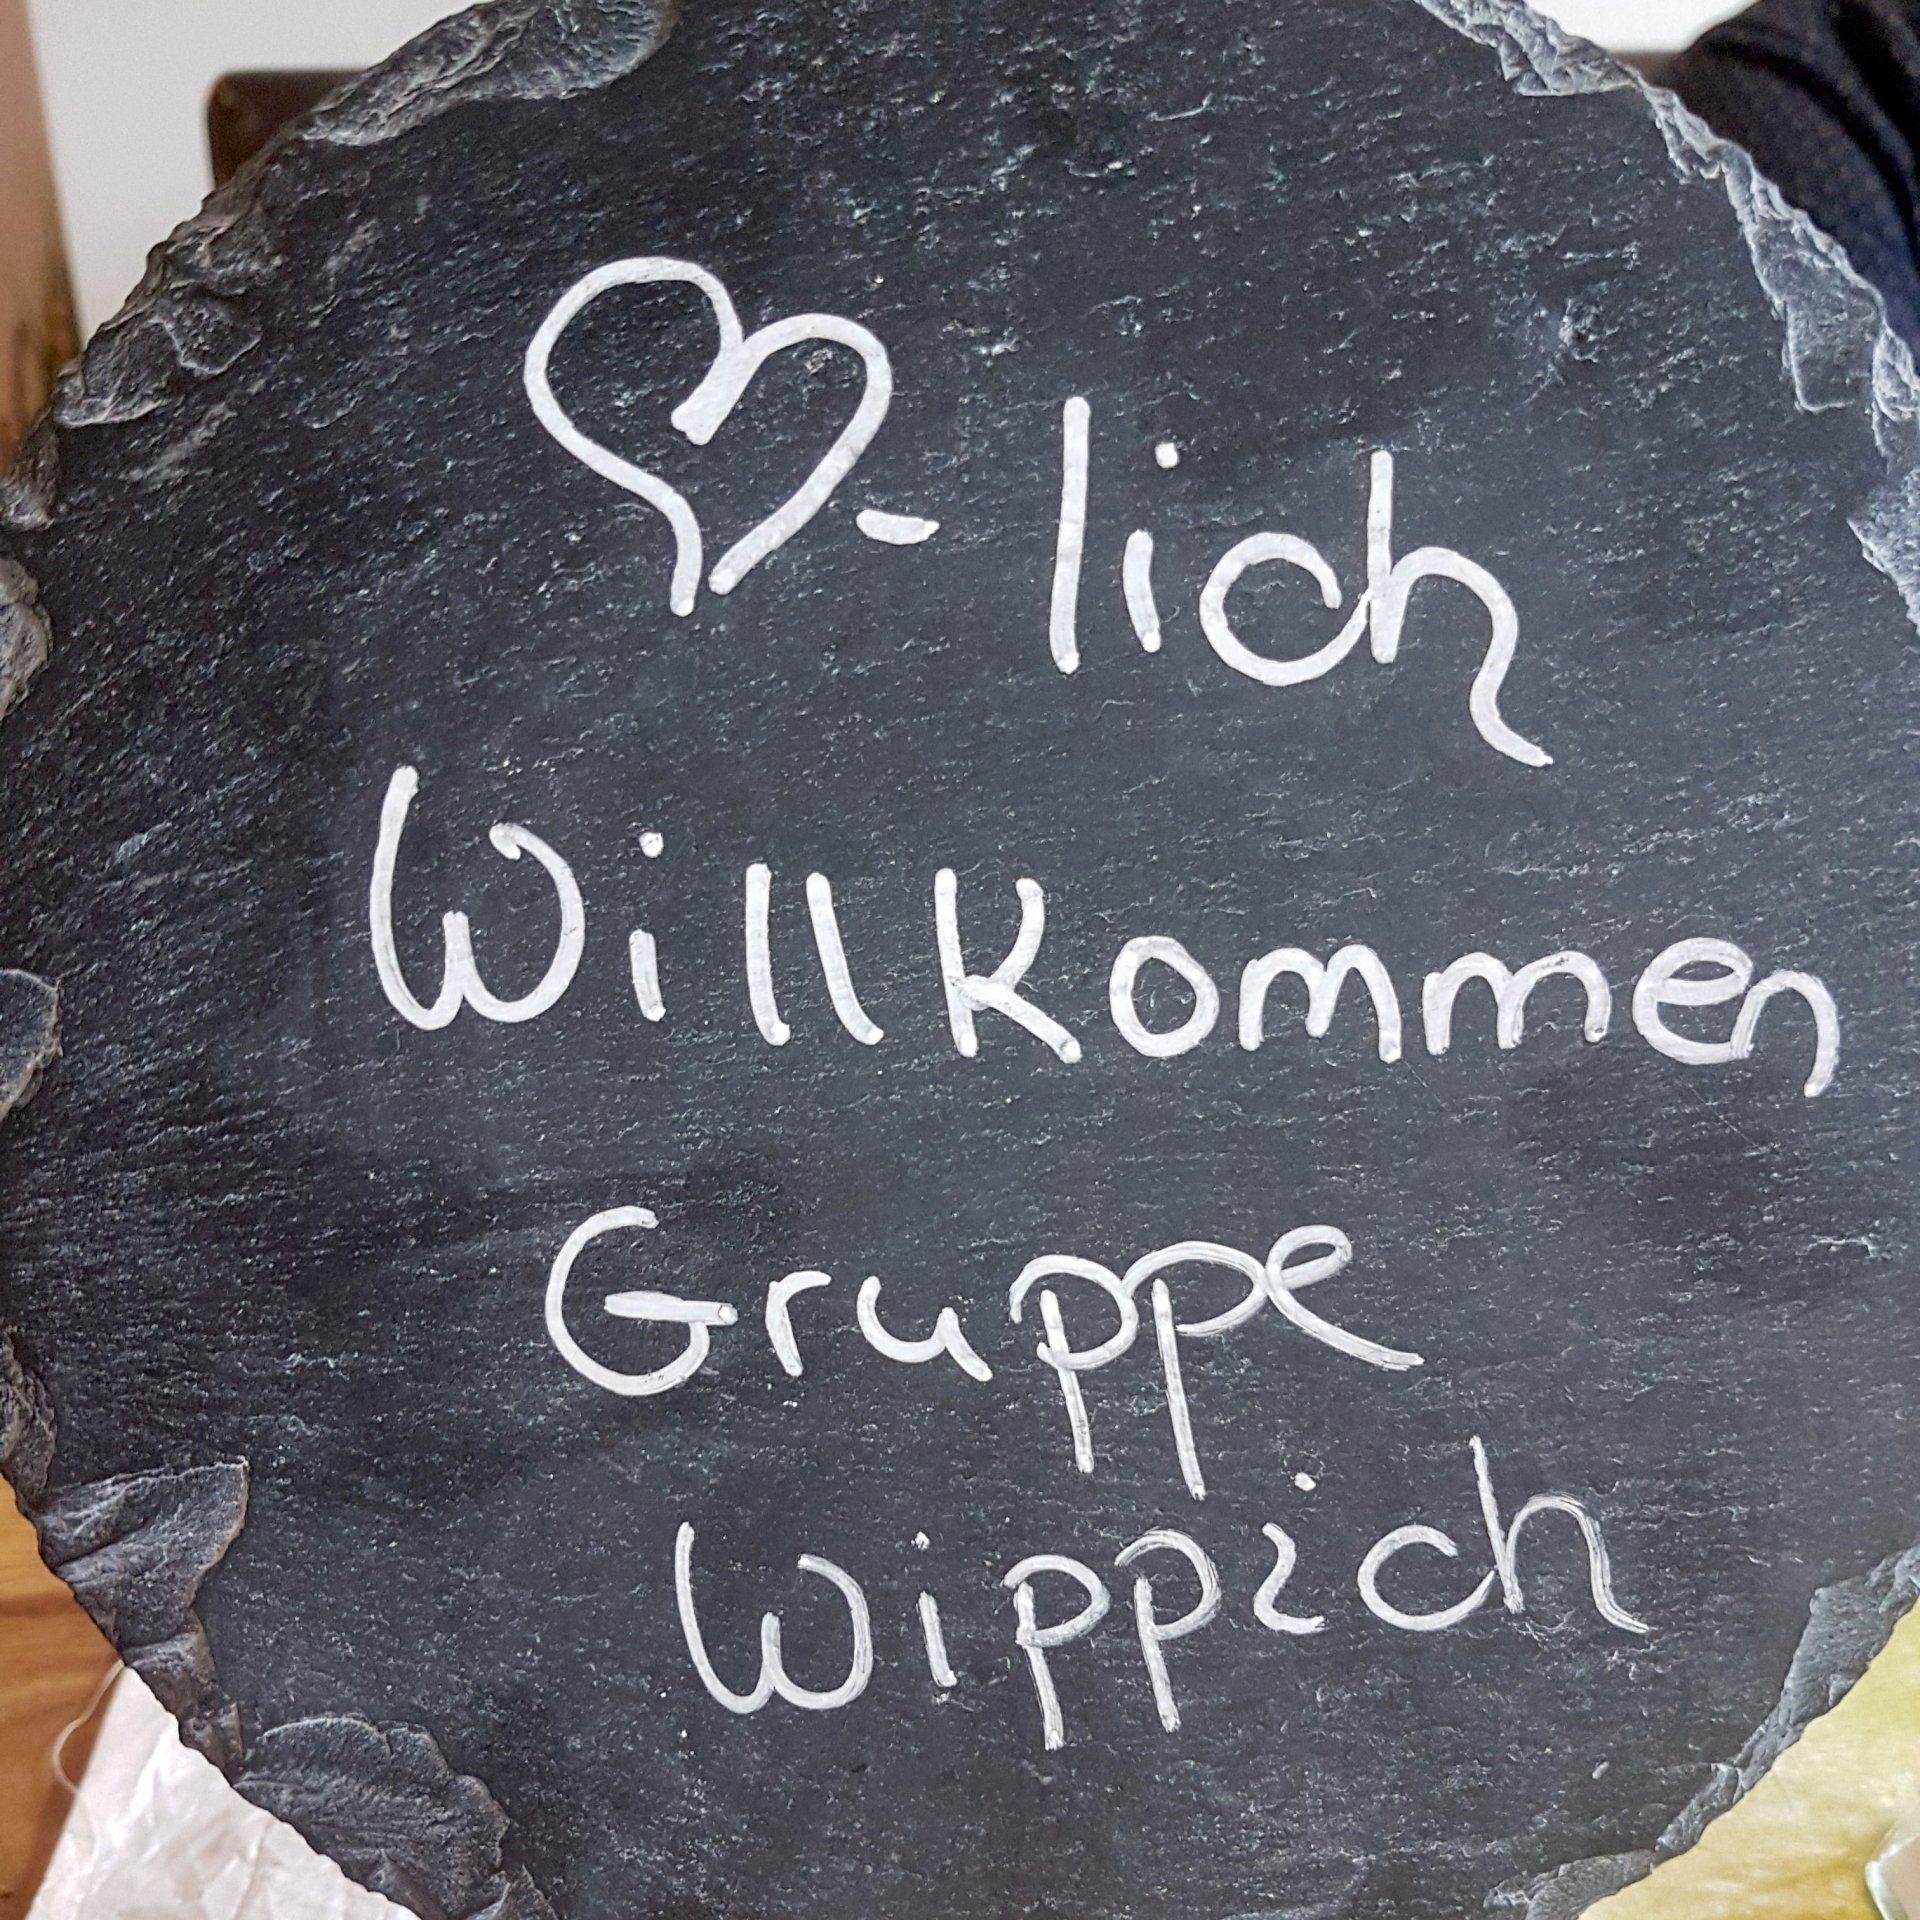 ♡-lich
Willkommen
Gruppe
Wippich